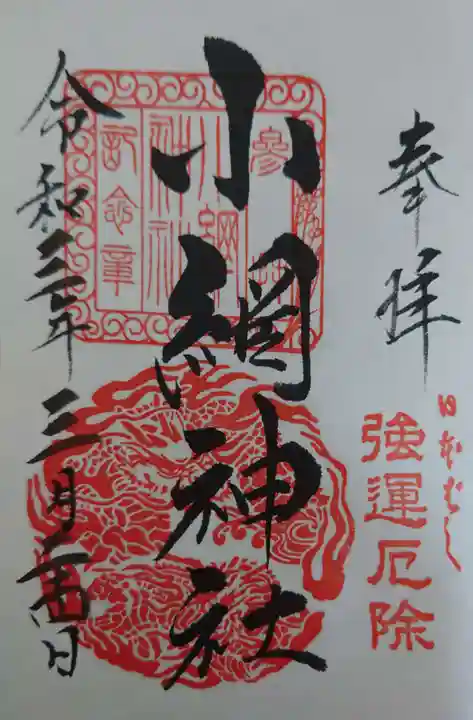 奉拝
日本ばし
強運厄除
参拝
小網神社
記念章
小網神社
令和三年三月二十四日